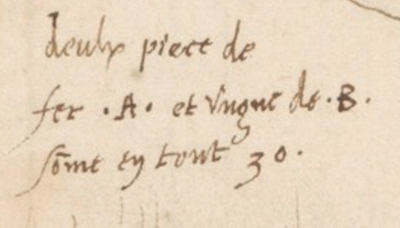 deulx piece de
fer . A . et vngne de . B .
sôme en tout 30 .